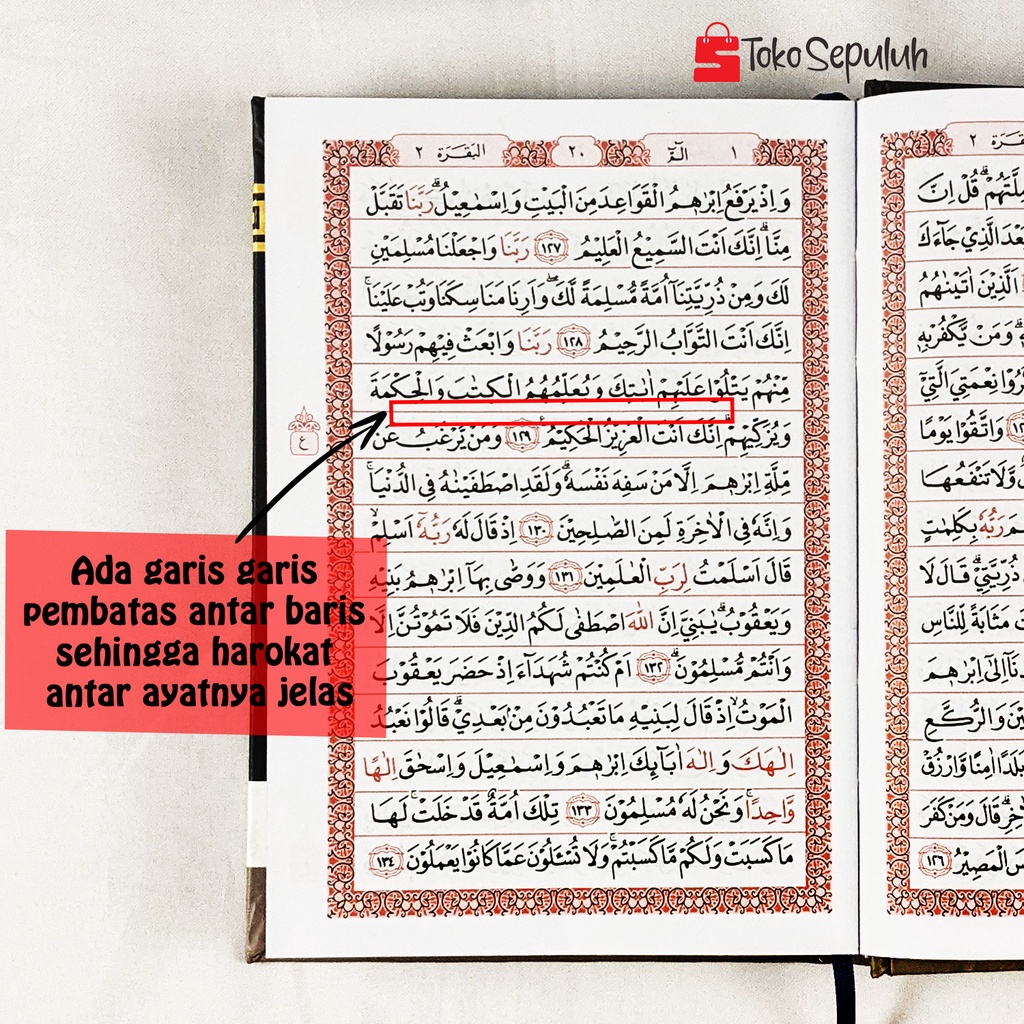 Toko Sepuluh
١ الٓمّٓ
٢٠
البَقَرَة ٢
وَاِذْ يَرْفَعُ اِبْرٰهٖمُ الْقَوَاعِدَ مِنَ الْبَيْتِ وَاِسْمٰعِيْلُۗ رَبَّنَا تَقَبَّلْ
مِنَّاۗ اِنَّكَ اَنْتَ السَّمِيْعُ الْعَلِيْمُ ١٢٧ رَبَّنَا وَاجْعَلْنَا مُسْلِمَيْنِ
لَكَ وَمِنْ ذُرِّيَّتِنَآ اُمَّةً مُّسْلِمَةً لَّكَۖ وَاَرِنَا مَنَاسِكَنَا وَتُبْ عَلَيْنَاۚ
اِنَّكَ اَنْتَ التَّوَّابُ الرَّحِيْمُ ١٢٨ رَبَّنَا وَابْعَثْ فِيْهِمْ رَسُوْلًا
مِّنْهُمْ يَتْلُوْا عَلَيْهِمْ اٰيٰتِكَ وَيُعَلِّمُهُمُ الْكِتٰبَ وَالْحِكْمَةَ
وَيُزَكِّيْهِمْۗ اِنَّكَ اَنْتَ الْعَزِيْزُ الْحَكِيْمُ ١٢٩ وَمَنْ يَّرْغَبُ عَنْ
ع
مِّلَّةِ اِبْرٰهٖمَ اِلَّا مَنْ سَفِهَ نَفْسَهٗۗ وَلَقَدِ اصْطَفَيْنٰهُ فِى الدُّنْيَاۚ
وَاِنَّهٗ فِى الْاٰخِرَةِ لَمِنَ الصّٰلِحِيْنَ ١٣٠ اِذْ قَالَ لَهٗ رَبُّهٗٓ اَسْلِمْۙ
قَالَ اَسْلَمْتُ لِرَبِّ الْعٰلَمِيْنَ ١٣١ وَوَصّٰى بِهَآ اِبْرٰهٖمُ بَنِيْهِ
وَيَعْقُوْبُۗ يٰبَنِيَّ اِنَّ اللّٰهَ اصْطَفٰى لَكُمُ الدِّيْنَ فَلَا تَمُوْتُنَّ اِلَّا
وَاَنْتُمْ مُّسْلِمُوْنَۗ ١٣٢ اَمْ كُنْتُمْ شُهَدَاۤءَ اِذْ حَضَرَ يَعْقُوْبَ
الْمَوْتُۙ اِذْ قَالَ لِبَنِيْهِ مَا تَعْبُدُوْنَ مِنْۢ بَعْدِيْۗ قَالُوْا نَعْبُدُ
اِلٰهَكَ وَاِلٰهَ اٰبَاۤىِٕكَ اِبْرٰهٖمَ وَاِسْمٰعِيْلَ وَاِسْحٰقَ اِلٰهًا
وَّاحِدًاۚ وَنَحْنُ لَهٗ مُسْلِمُوْنَ ١٣٣ تِلْكَ اُمَّةٌ قَدْ خَلَتْۚ لَهَا
مَا كَسَبَتْ وَلَكُمْ مَّا كَسَبْتُمْۚ وَلَا تُسْـَٔلُوْنَ عَمَّا كَانُوْا يَعْمَلُوْنَ ١٣٤
Ada garis garis
pembatas antar baris
sehingga harokat
antar ayatnya jelas
٢
مِلَّتَهُمْۗ قُلْ اِنَّ
بَعْدَ الَّذِيْ جَاۤءَكَ
اَلَّذِيْنَ اٰتَيْنٰهُمُ
وَمَنْ يَّكْفُرْ بِهٖ
نِعْمَتِيَ الَّتِيْٓ
وَاتَّقُوْا يَوْمًا
وَّلَا تَنْفَعُهَا
رَبُّهٗ بِكَلِمٰتٍ
ذُرِّيَّتِيْۗ قَالَ لَا
مَثَابَةً لِّلنَّاسِ
اِلٰٓى اِبْرٰهٖمَ
وَالرُّكَّعِ
بَلَدًا اٰمِنًا وَّارْزُقْ
قَالَ وَمَنْ كَفَرَ
الْمَصِيْرُ ١٢٦